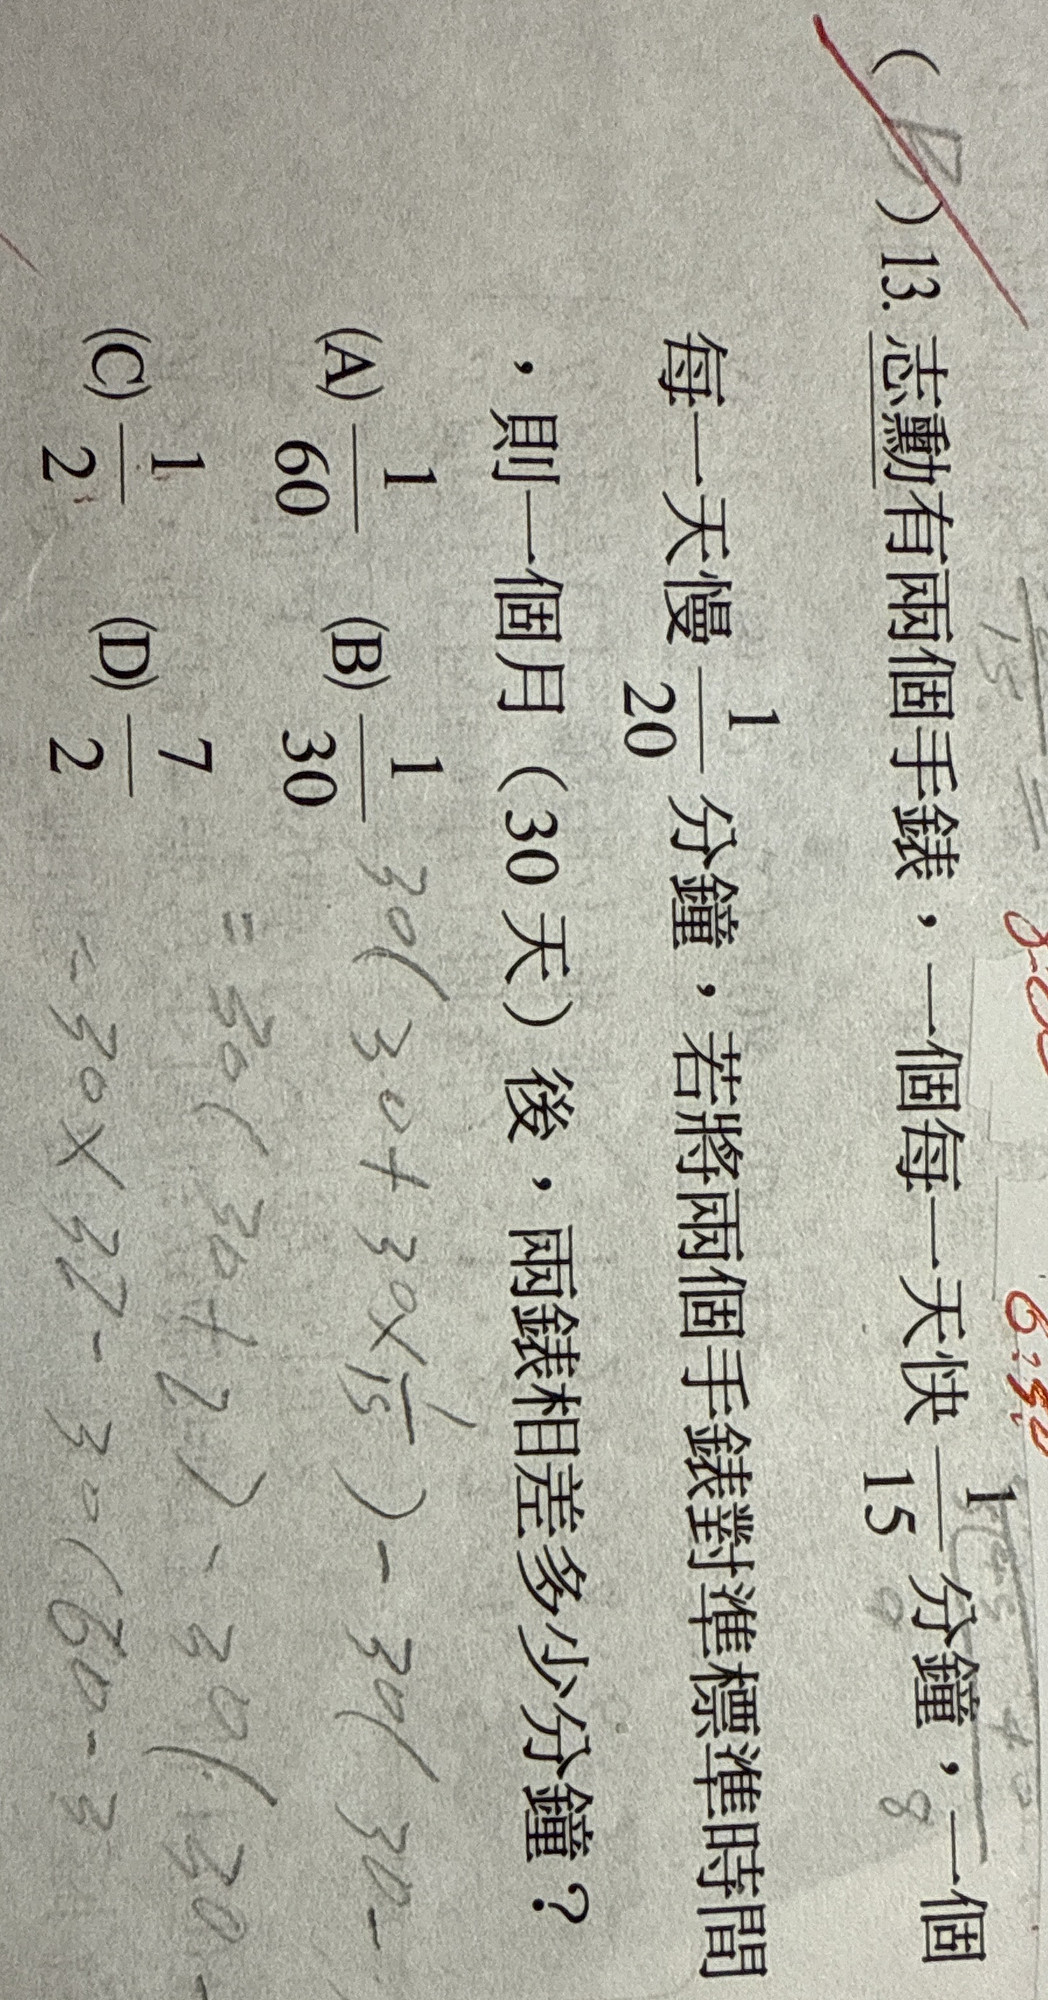 ( B ) 13. 志勳有兩個手錶，一個每一天快 1/15 分鐘，一個
每一天慢 1/20 分鐘，若將兩個手錶對準標準時間
，則一個月（30 天）後，兩錶相差多少分鐘？
(A) 1/60 (B) 1/30
(C) 1/2 (D) 7/2
30(30+30×1/15)-30(30-
=30(30+2)-30(30-
=30×32-30(60-3